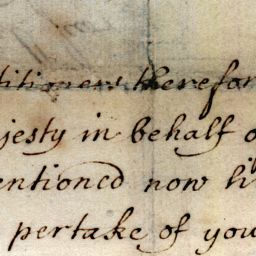 titioners therefor
jesty in behalf o
entioned now li
pertake of you